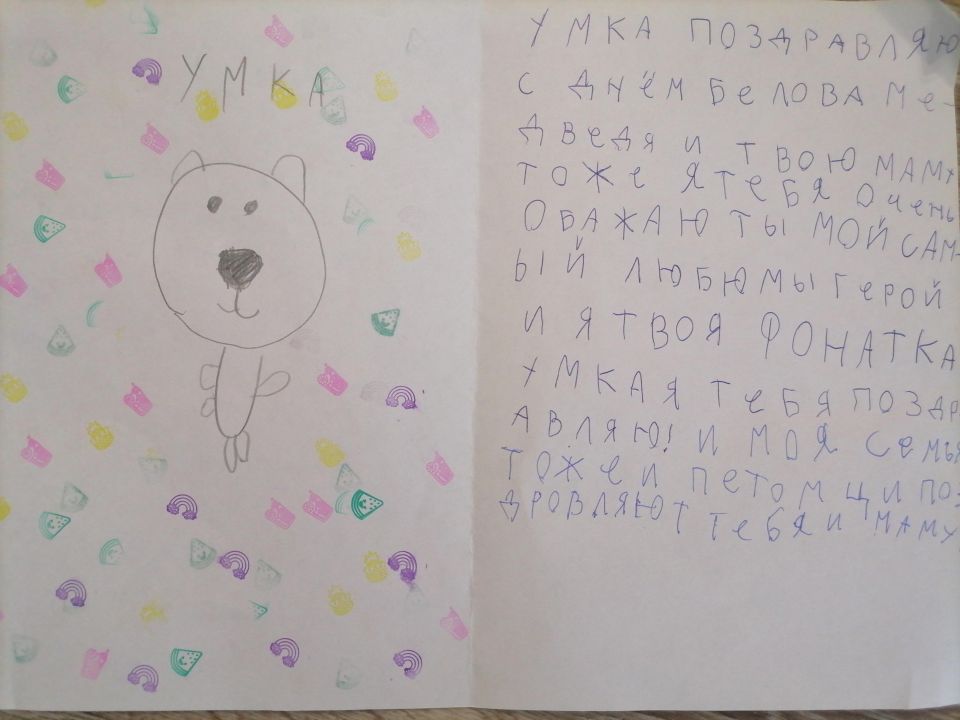 УМКА
УМКА ПОЗДРАВЛЯЮ
С ДНЁМ БЕЛОВА МЕ-
ДВЕДЯ И ТВОЮ МАМУ
ТОЖЕ Я ТЕБЯ ОЧЕНЬ
ОБАЖАЮ ТЫ МОЙ САМ-
ЫЙ ЛЮБЮМЫ ГЕРОЙ
И Я ТВОЯ ФОНАТКА
УМКА Я ТЕБЯ ПОЗДР
АВЛЯЮ! И МОЯ СЕМЬЯ
ТОЖЕ И ПЕТОМЦИ ПОЗ
ДРОВЛЯЮТ ТЕБЯ И МАМУ